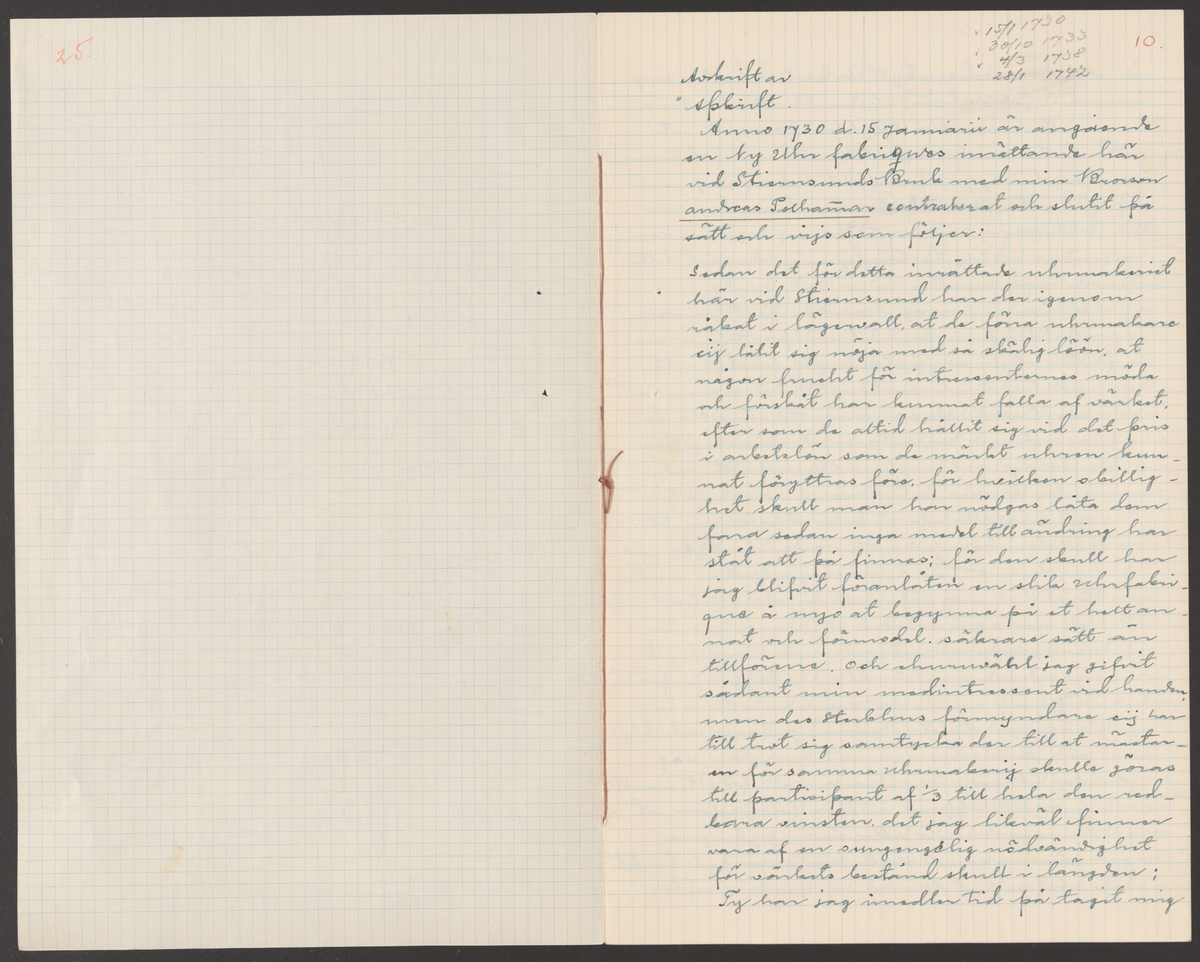 25.
15/1 1730
30/10 1733
4/3 1738
28/1 1742
10.
Avskrift av
" afskrift.
Anno 1730 d. 15 Januarii är angående
en Ny Uhr fabriques inrättande här
vid Stiernsunds Bruk med min Brorson
andreas Polhammar contraherat och slutit på
sätt och vijs som följer:
Sedan det för detta inrättade uhrmakeriet
här vid Stiernsund har der igenom
råkat i lägervall, at de förra uhrmakare
eij låtit sig nöja med så skälig löön, at
någon frucht för intressenternes möda
och förskåt har kunnat falla af värket,
efter som de altid hållit sig vid det pris
i arbetslön som de märkt uhren kun-
nat föryttras före, för hvilken obillig-
het skull man har nödgas låta dem
fara sedan inga medel till ändring har
ståt att på finnas; för den skull har
jag blifvit föranlåten en slik Uhrfabri-
que å nyo at begynna på et helt an-
nat och förmodel. säkrare sätt än
tillförene. Och ehuruwähl jag gifvit
sådant min medintressent vid handen,
men des Sterbhus förmyndare eij har
till trot sig samtycka der till at mästar-
en för samma uhrmakerij skulle göras
till participant af 1/3 till hela den red-
bara vinsten, det jag likväl finner
vara af en oungengelig nödvändighet
för värkets bestånd skull i längden;
Ty har jag imedler tid på tagit mig